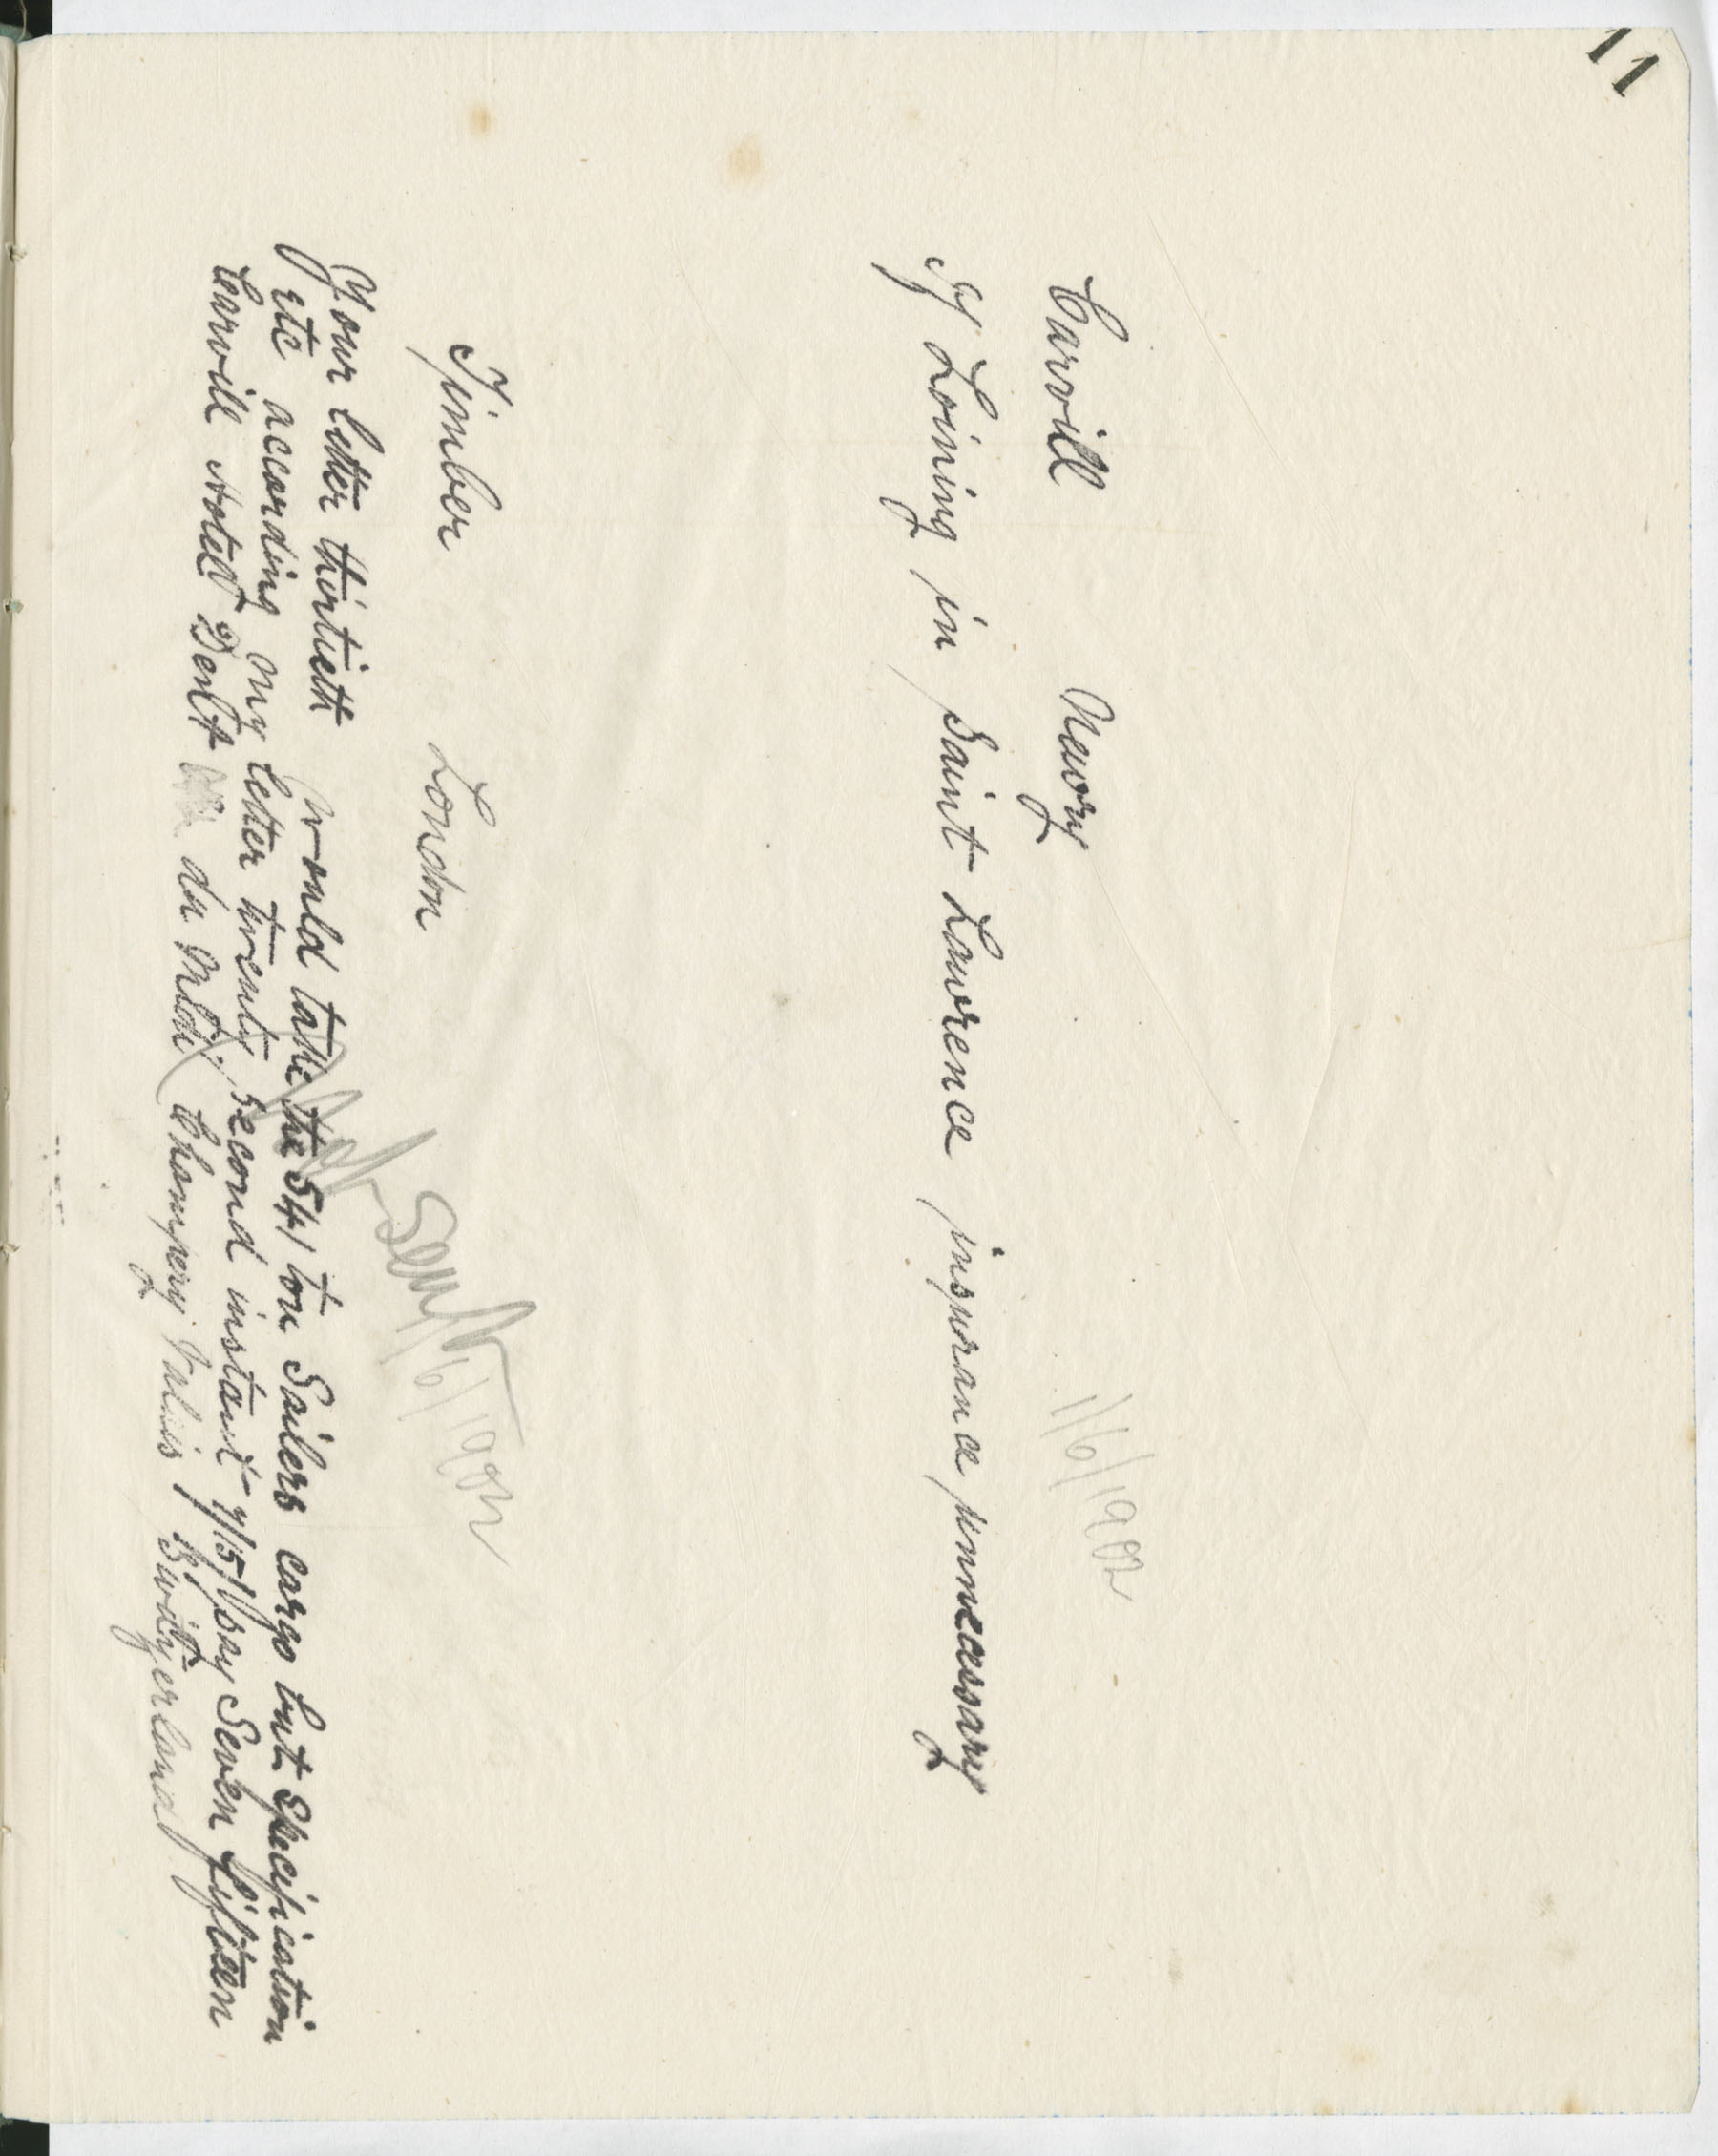 11
Carvill Newry
1/6/1902
If Loining in Saint Lawrence insurance unnecessary
Timber London
1/6/1902
Your letter thirtieth would take the 541 ton Sailers cargo but Specification
etc according my letter twenty second instant 7/15/ say Seven fifteen
Carvill Hotel Dent du Midi Champery Valais Switzerland